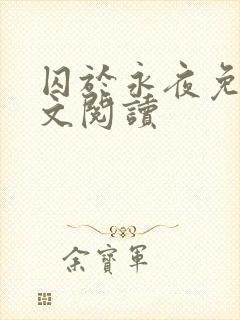 囚於永夜免
文閱讀
余寶軍